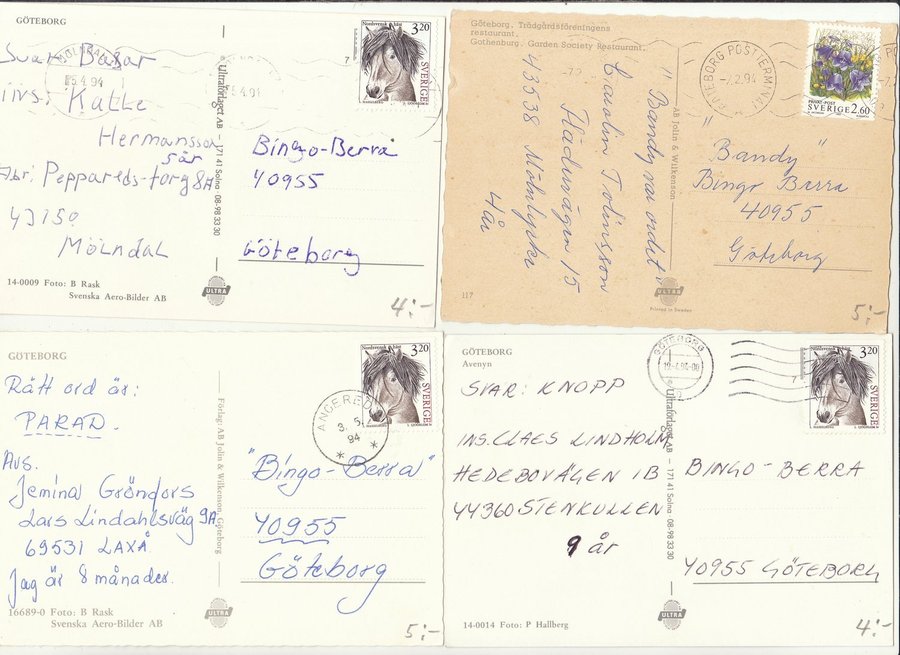 GÖTEBORG
Svar: Basar
ins. Katte
Hermansson
5år
Peppareds-torg 8A
43150
MÖLNDAL
14-0009 Foto: B Rask
Svenska Aero-Bilder AB
Ultraförlaget AB – 171 41 Solna 08-98 33 30
ULTRA
5.4.94
Nordsvensk häst 3.20
SVERIGE
Bingo-Berra
40955
Göteborg
4:-
Göteborg. Trädgårdsföreningens
restaurant.
Gothenburg. Garden Society Restaurant.
"Bandy var ordet"
Carolin
15
43538 Mölnlycke
4 år
117
AB Jolin & Wilkenson
ULTRA
Printed in Sweden
GÖTEBORG POSTTERMINAL
-7.2.94
PRIVAT-POST
SVERIGE 2.60
"Bandy"
Bingo Berra
40955
Göteborg
5:-
GÖTEBORG
Rätt ord är:
PARAD.
Avs.
Jemina Gröndors
Lars Lindahlsväg 9A
69531 LAXÅ.
Jag är 8 månader.
16689-0 Foto: B Rask
Svenska Aero-Bilder AB
Förlag: AB Jolin & Wilkenson, Göteborg
ULTRA
Nordsvensk häst 3.20
SVERIGE
ANGERED
3.5.
94
"Bingo-Berra"
40955
Göteborg
5:-
GÖTEBORG
Avenyn
SVAR: KNOPP
INS. CLAES LINDHOLM
HEDEBOVÄGEN 1B
44360 STENKULLEN
9 år
14-0014 Foto: P Hallberg
Ultraförlaget AB – 171 41 Solna 08-98 33 30
ULTRA
GÖTEBORG
Nordsvensk häst 3.20
SVERIGE
BINGO-BERRA
40955 GÖTEBORG
4:-